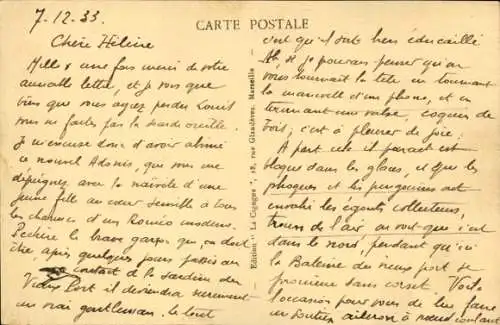 7-12.33
CARTE POSTALE
Chère Hélène
Mille & une fois merci de votre
aimable lettre, et je vous que
bien que vous ayez perdu Louis
vous ne faites pas la sourde oreille.
Je m'excuse donc d'avoir abimé
ce nouvel Adonis, que vous me
dépeignez avec la naïveté d'une
jeune fille au cœur sensible à tous
les charmes d'un Roméo moderne.
le brave garçon, qui, on doit
être, après quelques jours passés au
contact de la sardine du
Vieux Port il deviendra surement
un vrai gentleman. le tout
Edition "La Cigogne", 18, rue Grignan, Marseille
c'est qu'il soit bien éducaillé
Ah, si je pouvais penser qu'on
vous tournait la tête en tournant
la manivelle d'un phono, et en
une valse, coquin de
sort; c'est à pleurer de joie.
A part cela il parait est
bloqué dans les glaces, et que les
phoques et les pingouins ont
envahi les égouts collecteurs,
de l'air au vent que c'est
dans le nord, pendant qu'ici
la Baleine du vieux port se
promène sans corset. Voilà
l'occasion pour vous de lui faire
un soutien